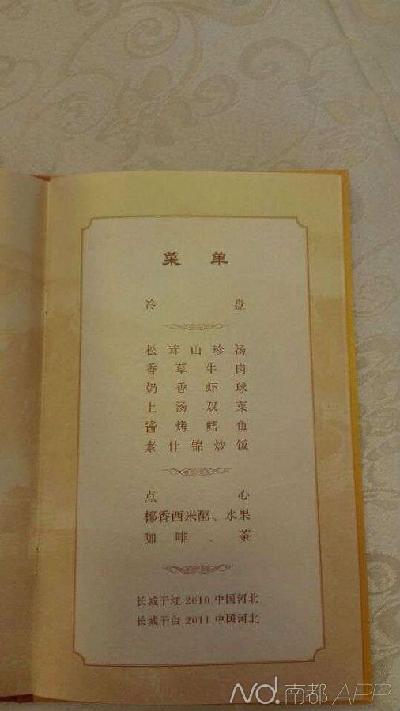 菜单
冷盘
松茸山珍汤
香草牛肉
奶香虾球
上汤双菜
酱烤鳕鱼
素什锦炒饭
点心
椰香西米酪、水果
咖啡、茶
长城干红 2010 中国河北
长城干白 2011 中国河北
南都APP